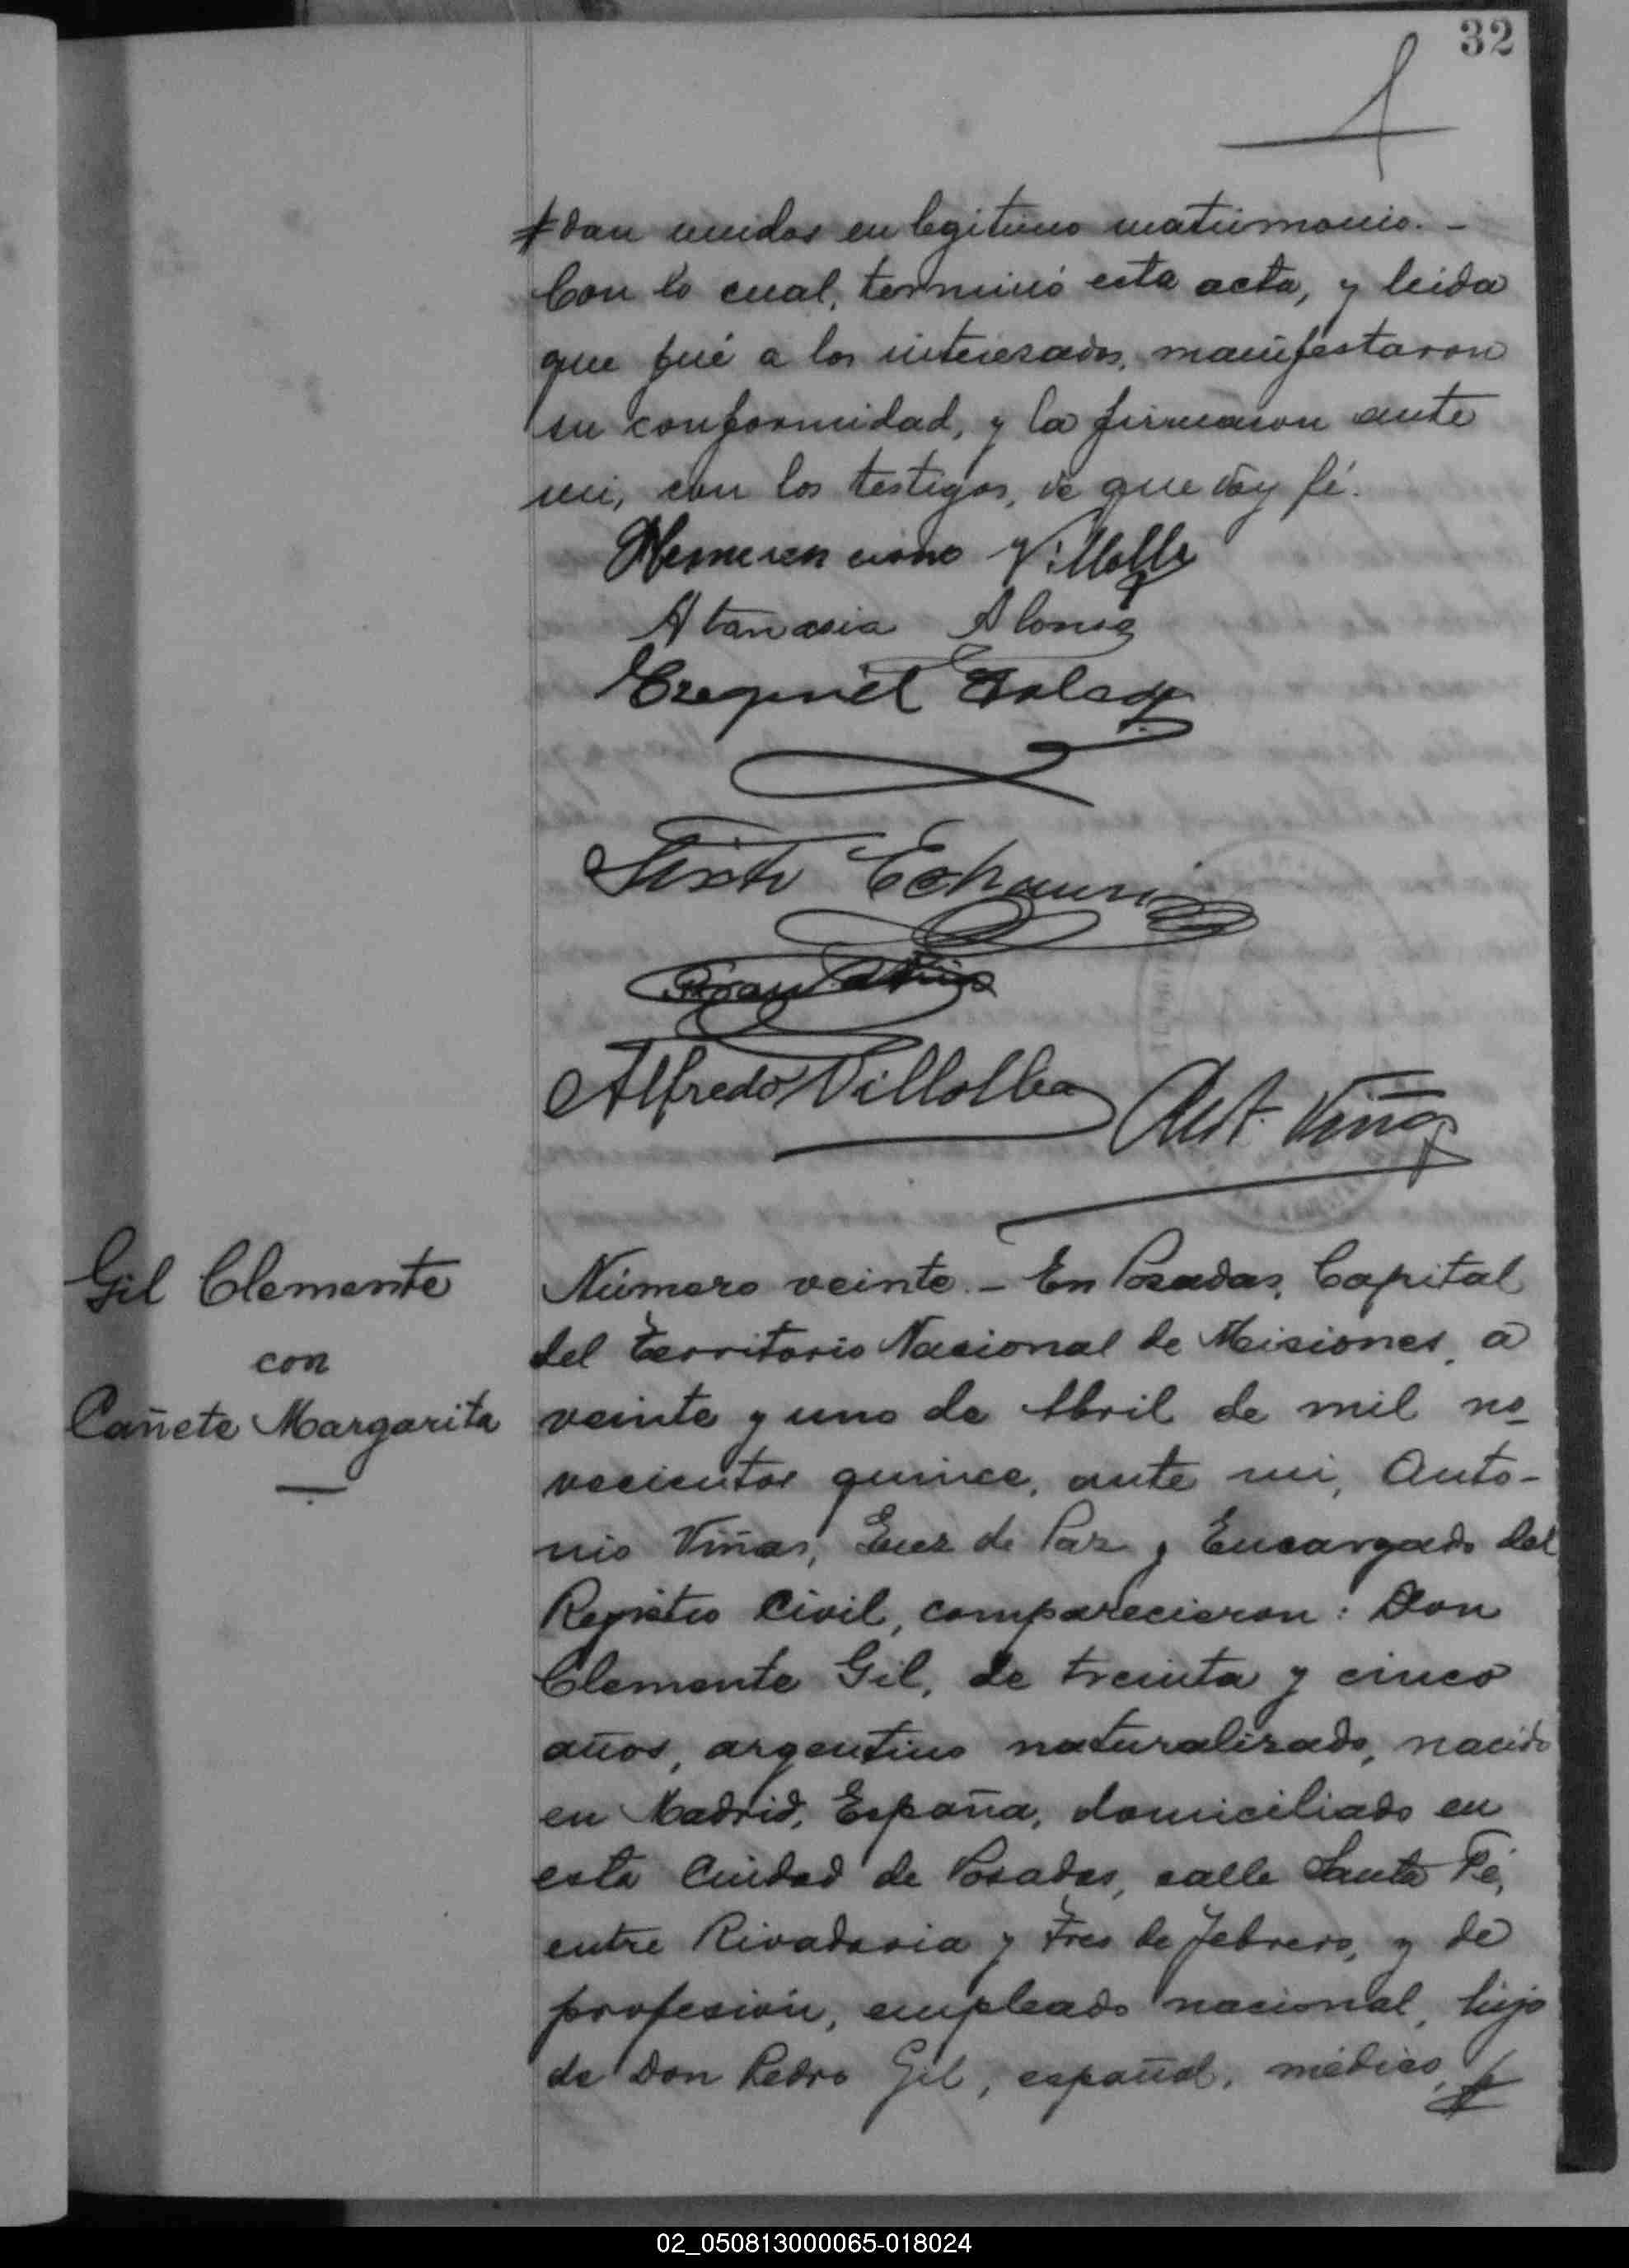 32
dan unidos en legitimo matrimonio. -
Con lo cual, terminó esta acta, y leida
que fué a los interesados, manifestaron
su conformidad, y la firmaron ante
mi, con los testigos, de que doy fé.
Villalba
Atanasia Alonso
Ezequiel Toledo
Sixto Echauri
Alfredo Villalba
Ant. Viñas
Gil Clemente
con
Cañete Margarita
Número veinte. - En Posadas, Capital
del Territorio Nacional de Misiones, a
veinte y uno de Abril de mil no-
vecientos quince, ante mi, Anto-
nio Viñas, Juez de Paz y Encargado del
Registro Civil, comparecieron: Don
Clemente Gil, de treinta y cinco
años, argentino naturalizado, nacido
en Madrid, España, domiciliado en
esta Ciudad de Posadas, calle Santa Fé,
entre Rivadavia y Tres de Febrero, y de
profesión, empleado nacional, hijo
de Don Pedro Gil, español, médico,
02_050813000065-018024